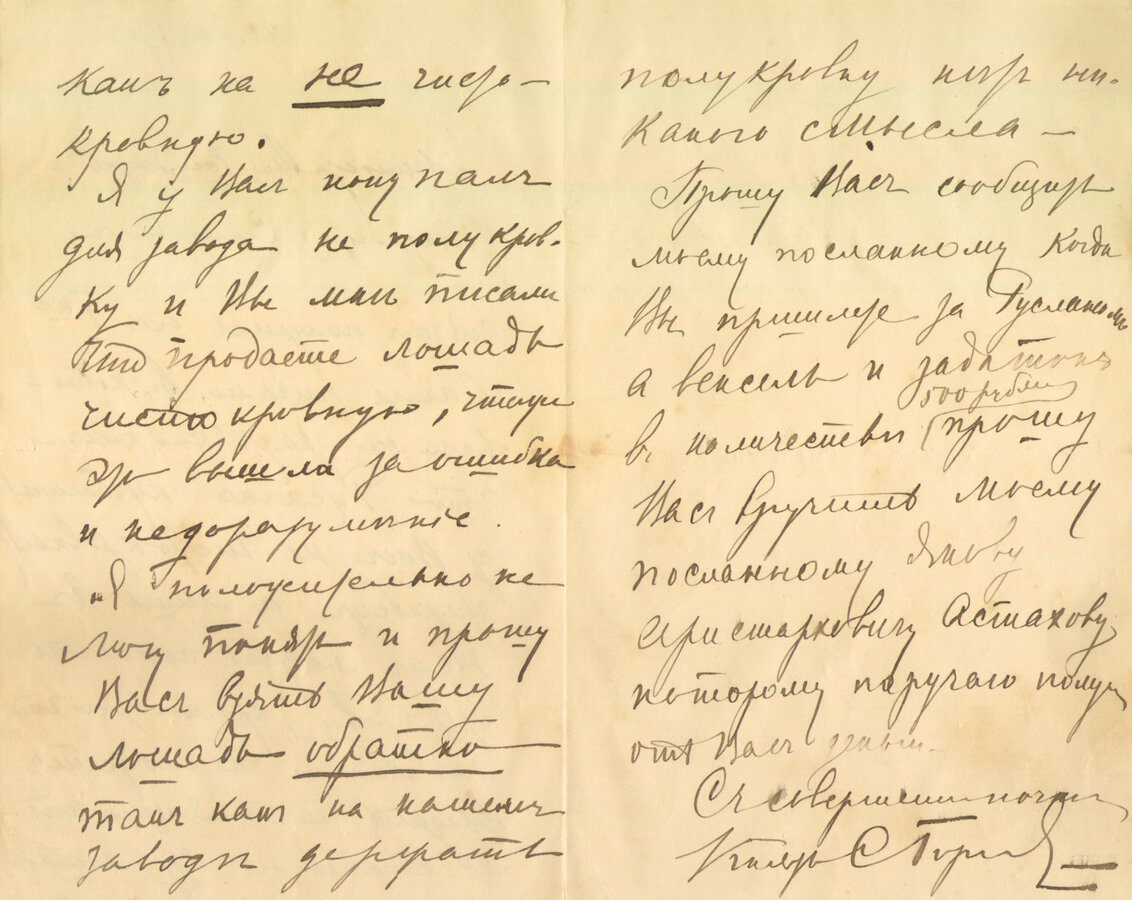 какъ на не чисто-
кровную.
Я у Васъ покупалъ
для завода не полукров-
ку и Вы мнѣ писали
что продаете лошадь
чистокровную,
это вышла за ошибка
и недоразумѣніе.
Я положительно не
могу понять и прошу
Васъ взять Вашу
лошадь обратно
такъ какъ на нашемъ
заводѣ держать
полукровку нѣтъ ни-
какого смысла —
Прошу Васъ сообщить
моему посланному когда
Вы пришлете за Русланомъ
а вексель и задатокъ
500 рублей
въ количествѣ прошу
Васъ вручить моему
посланному Якову
Аристарховичу Астахову
которому поручаю получ
отъ Васъ деньги.
Съ совершен. почт
С